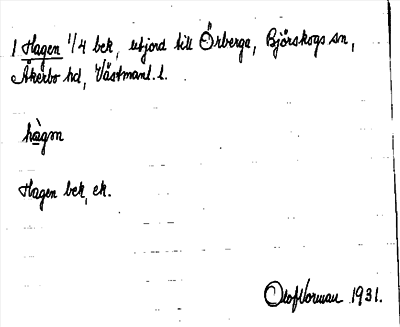 1 Hagen 1/4 bek, utjord till Örberga, Björskogs sn,
Åkerbo hd, Västmanl. l.
hàgɔn
Hagen bek, ek.
Olof Norman 1931.